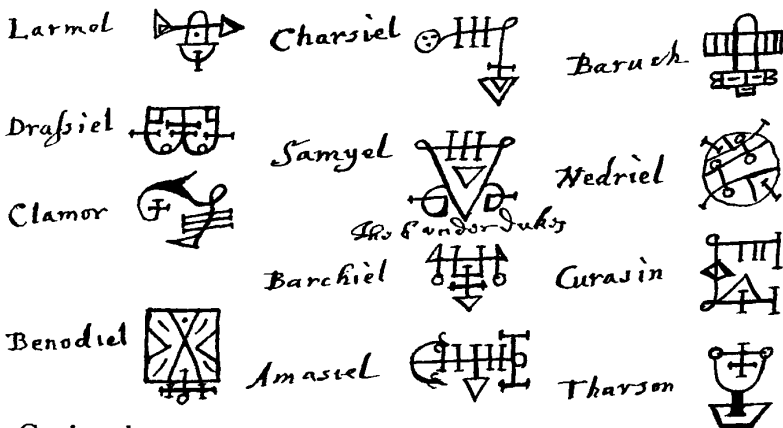 Larmol
Drassiel
Clamor
Benodiel
Charsiel
Samyel
The 6 under dukes
Barchiel
Amasiel
Baruch
Nedriel
Curasin
Tharson